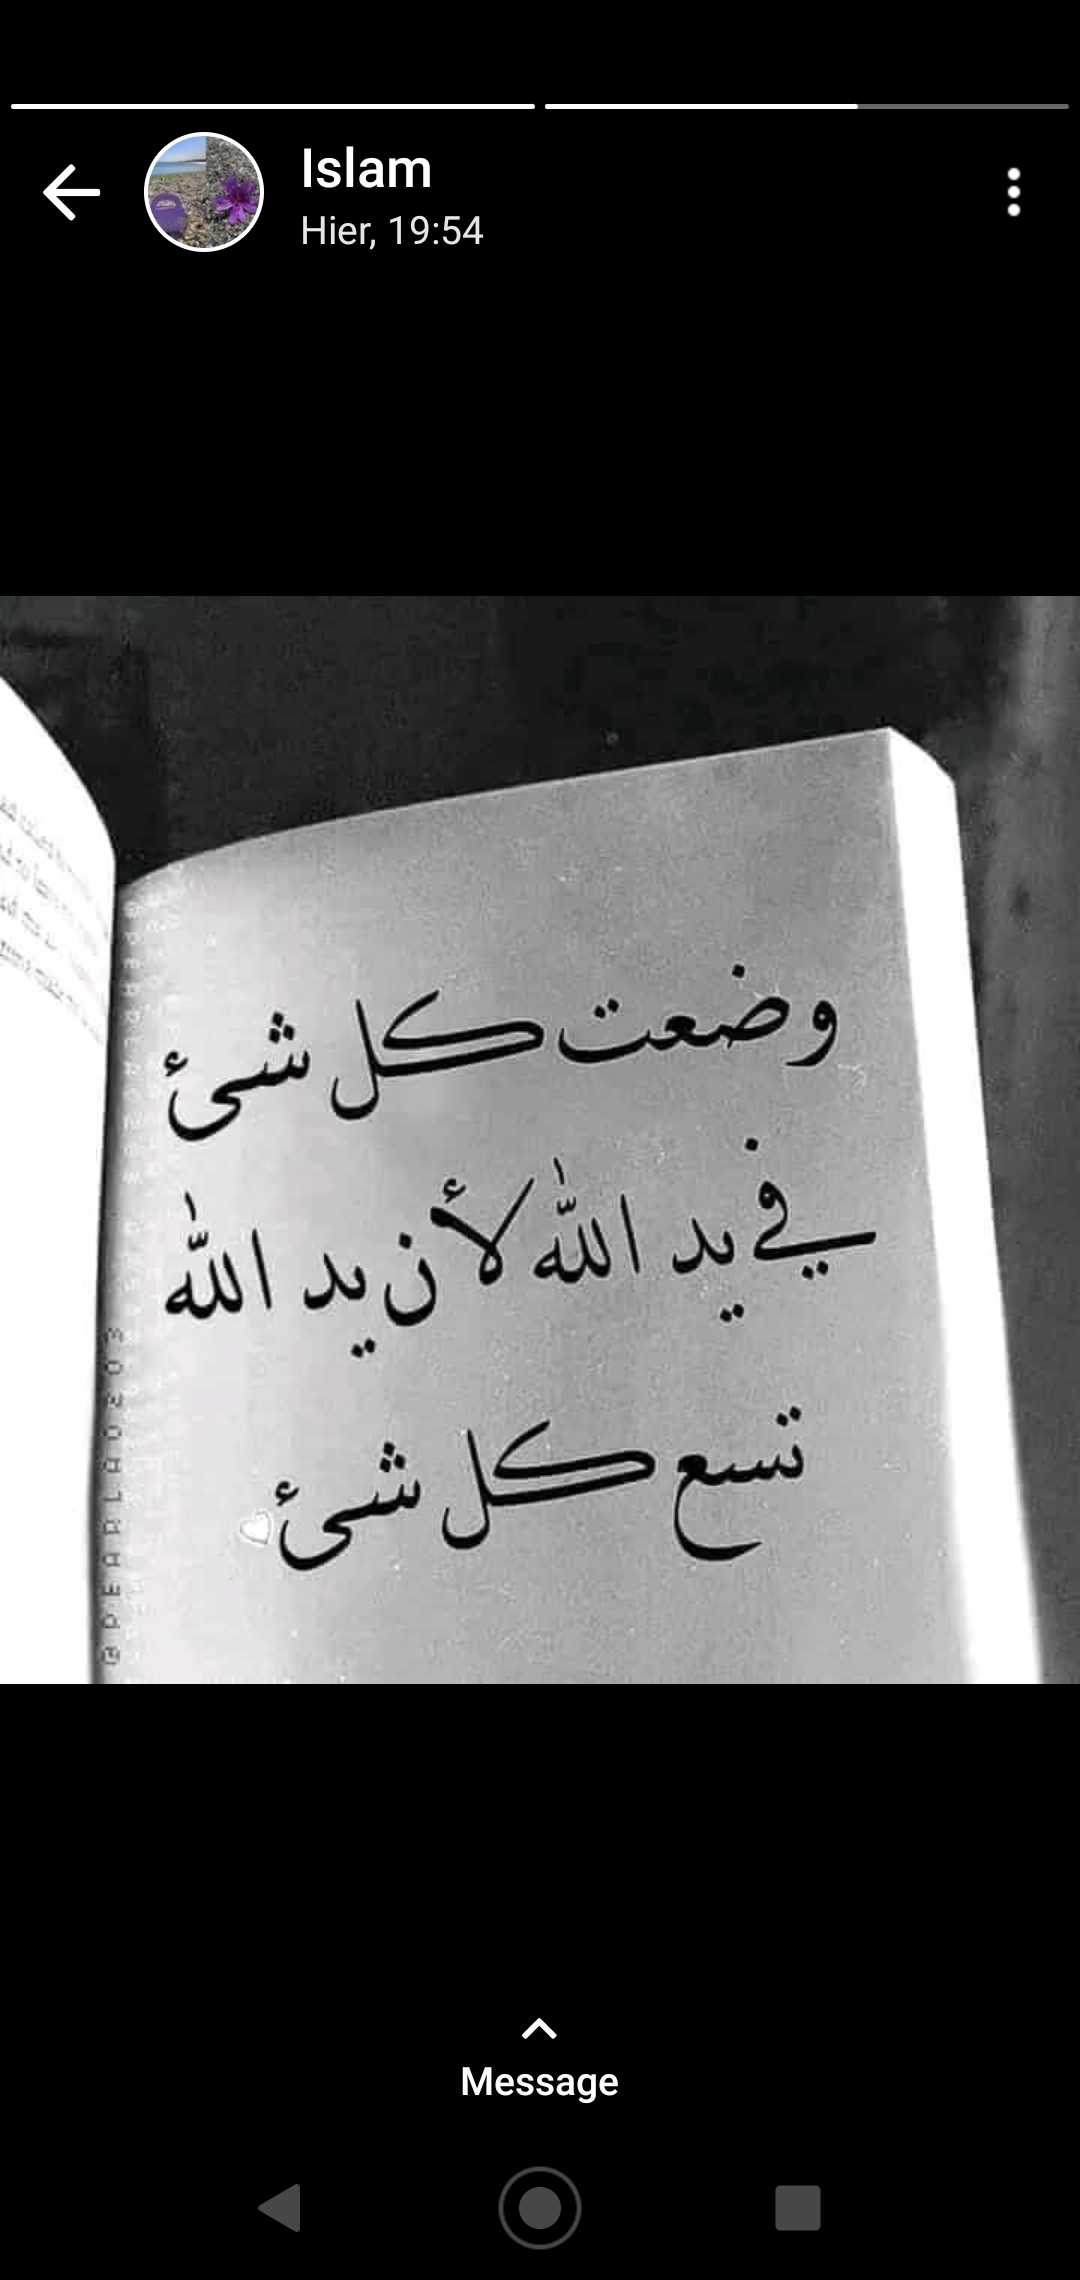 Islam
Hier, 19:54
وضعت كل شئ
في يد الله لأن يد الله
تسع كل شئ
@PEARLA0203
Message